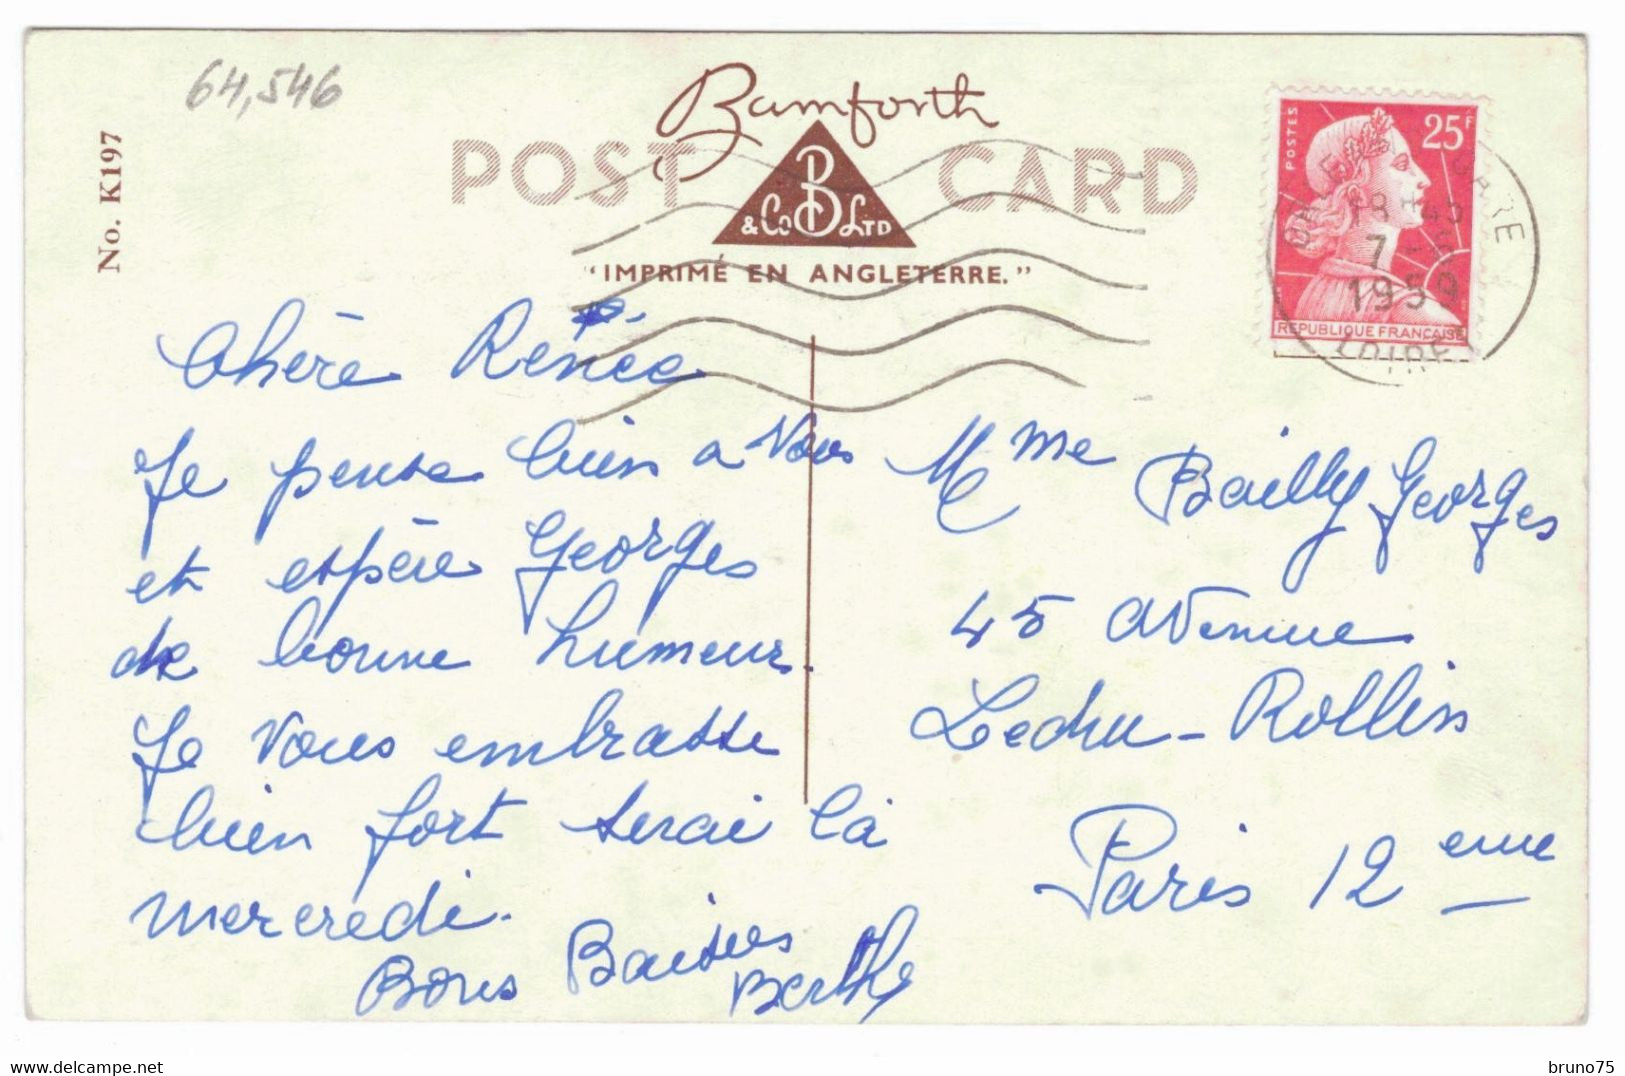 64,546
No. K197
Bamforth
POST CARD
& Co B LTD
"IMPRIMÉ EN ANGLETERRE."
POSTES
25F
GARE
18H45
7 -
1959
RÉPUBLIQUE FRANÇAISE
LOIRET
Chère Renée
Je pense bien a Vous
et espère Georges
de bonne humeur.
Je Vous embrasse
bien fort serai là
mercredi.
Bons Baisers
Berthe
Mme Bailly Georges
45 Avenue
Ledru-Rollin
Paris 12 eme
bruno75